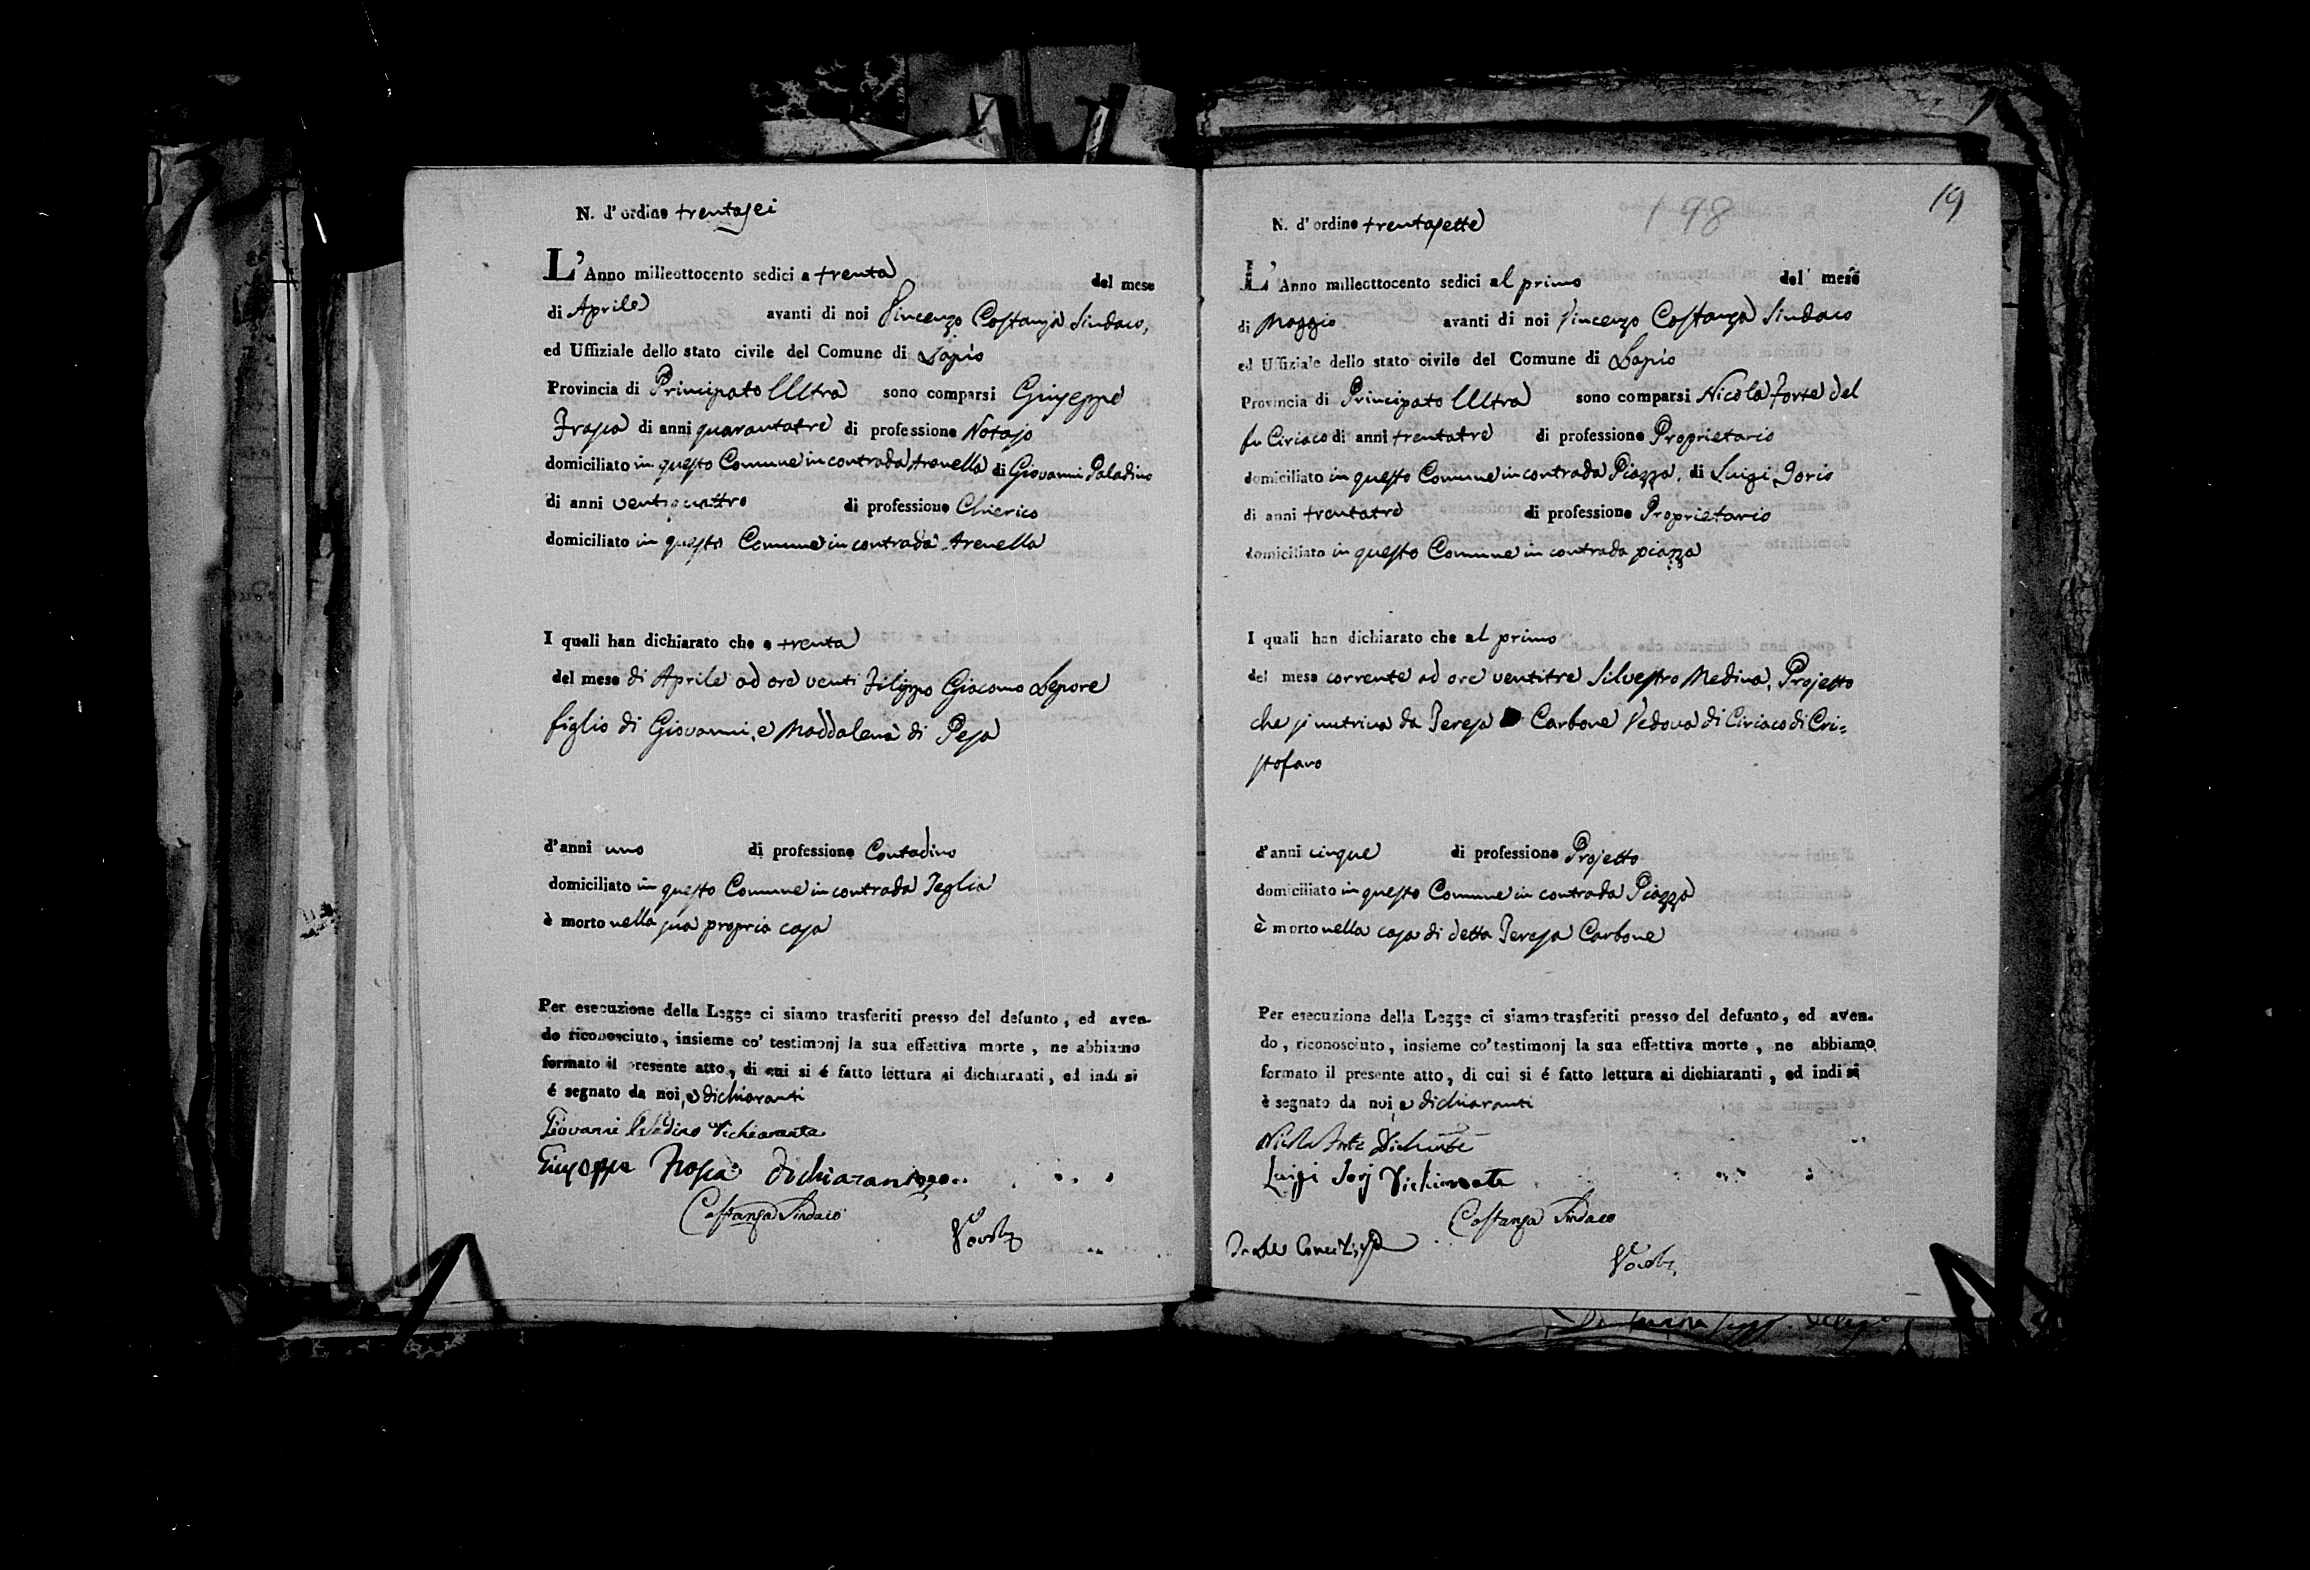 N. d' ordine trentasei
L' Anno milleottocento sedici a trenta del mese
di Aprile avanti di noi Vincenzo Costanza Sindaco,
ed Uffiziale dello stato civile del Comune di Lapio
Provincia di Principato Ultra sono comparsi Giuseppe
Frasca di anni quarantatre di professione Notajo
domiciliato in questo Comune in contrada Arenella di Giovanni Paladino
di anni ventiquattro di professione Chierico
domiciliato in questo Comune in contrada Arenella
I quali han dichiarato che a trenta
del mese di Aprile ad ore venti Filippo Giacomo Lepore
figlio di Giovanni, e Maddalena di Pesa
d'anni uno di professione Contadino
domiciliato in questo Comune in contrada Teglia
è morto nella sua propria casa
Per esecuzione della Legge ci siamo trasferiti presso del defunto, ed aven-
do riconosciuto, insieme co' testimonj la sua effettiva morte, ne abbiamo
formato il presente atto, di cui si é fatto lettura ai dichiaranti, ed indi si
é segnato da noi, e dichiaranti
Giovanni Paladino Dichiarante
Giuseppe Frasca dichiarante
Costanza Sindaco
19
198
N. d' ordine trentasette
L' Anno milleottocento sedici al primo del mese
di Maggio avanti di noi Vincenzo Costanza Sindaco
ed Uffiziale dello stato civile del Comune di Lapio
Provincia di Principato Ultra sono comparsi Nicola Forte del
fu Ciriaco di anni trentatre di professione Proprietario
domiciliato in questo Comune in contrada Piazza, di Luigi Jorio
di anni trentatre di professione Proprietario
domiciliato in questo Comune in contrada piazza
I quali han dichiarato che al primo
del mese corrente ad ore ventitre Silvestro Medina, Projetto
che si nutriva da Teresa Carbone Vedova di Ciriaco di Cri=
stofaro
d'anni cinque di professione Projetto
domiciliato in questo Comune in contrada Piazza
è morto nella casa di detta Teresa Carbone
Per esecuzione della Legge ci siamo trasferiti presso del defunto, ed aven-
do, riconosciuto, insieme co' testimonj la sua effettiva morte, ne abbiamo
formato il presente atto, di cui si é fatto lettura ai dichiaranti, ed indi si
è segnato da noi, e dichiaranti
Nicola Forte Dichiarante
Luigi Jorj Dichiarante
Costanza Sindaco